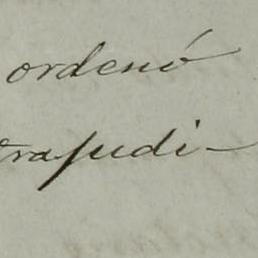 ordenó
trajudi-